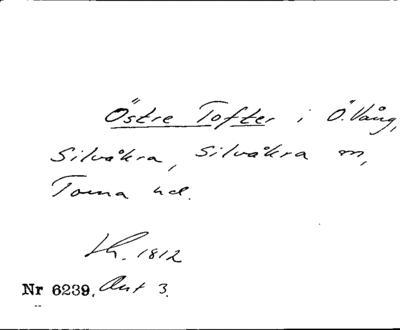 Östre Tofter i Ö. Vång,
Silvåkra, Silvåkra sn,
Torna hd.
Lh. 1812
Nr 6239. Akt 3.